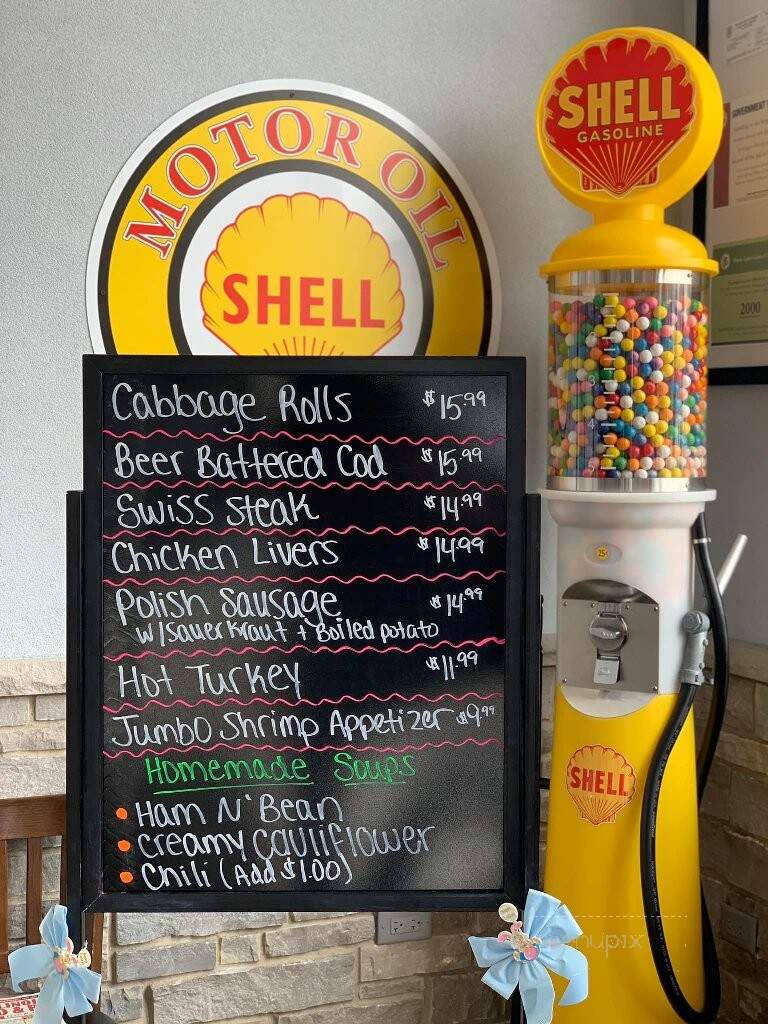 MOTOR OIL
SHELL
SHELL
GASOLINE
GOVERNMENT
2000
25¢
SHELL
Cabbage Rolls $15.99
Beer Battered Cod $15.99
Swiss Steak $14.99
Chicken Livers $14.99
Polish Sausage $14.99
w/Sauerkraut + Boiled potato
Hot Turkey $11.99
Jumbo Shrimp Appetizer $9.99
Homemade Soups
• Ham N' Bean
• Creamy Cauliflower
• Chili (Add $1.00)
menupix